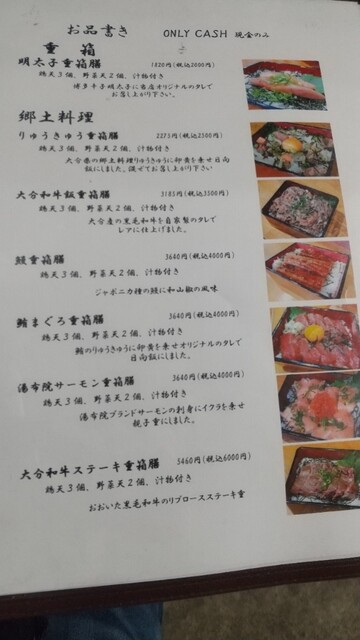 お品書き ONLY CASH 現金のみ
重箱
明太子重箱膳 1820円(税込2000円)
鶏天3個、野菜天2個、汁物付き
博多辛子明太子に当店オリジナルのタレで
お召し上がり下さい。
郷土料理
りゅうきゅう重箱膳 2273円(税込2500円)
鶏天3個、野菜天2個、汁物付き
大分県の郷土料理りゅうきゅうに卵黄を乗せ日向
飯にしました。混ぜてお召し上がり下さい
大分和牛飯重箱膳 3182円(税込3500円)
鶏天3個、野菜天2個、汁物付き
大分産の黒毛和牛を自家製のタレで
レアに仕上げました。
鰻重箱膳 3640円(税込4000円)
ジャポニカ種の鰻に和山椒の風味
鮪まぐろ重箱膳 3640円(税込4000円)
鶏天3個、野菜天2個、汁物付き
鮪のりゅうきゅうに卵黄を乗せオリジナルのタレで
日向飯にしました。
湯布院サーモン重箱膳 3640円(税込4000円)
鶏天3個、野菜天2個、汁物付き
湯布院ブランドサーモンの刺身にイクラを乗せ
親子重にしました。
大分和牛ステーキ重箱膳 5460円(税込6000円)
鶏天3個、野菜天2個、汁物付き
おおいた黒毛和牛のリブロースステーキ重